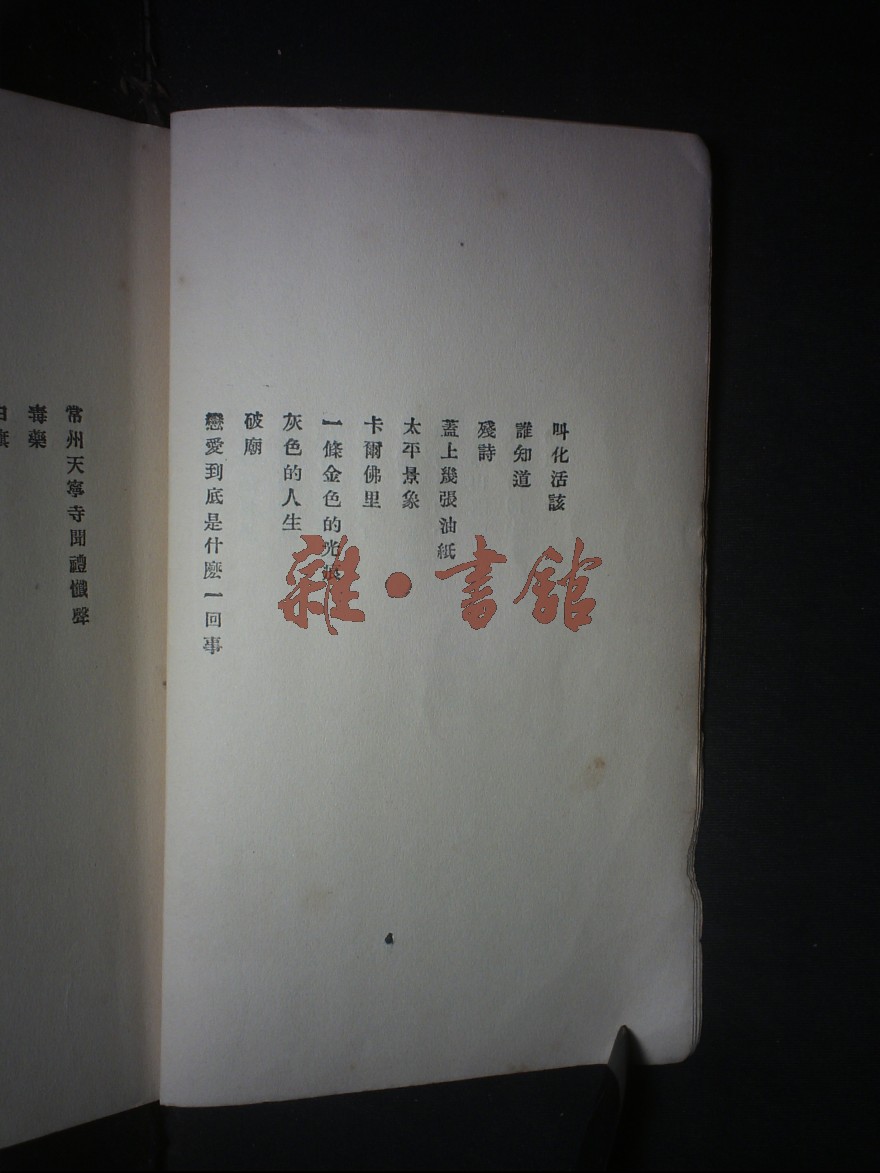 叫化活該
誰知道
殘詩
蓋上幾張油紙
太平景象
卡爾佛里
一條金色的光痕
灰色的人生
破廟
戀愛到底是什麼一回事
4
常州天寧寺聞禮懺聲
毒藥
雜·書館